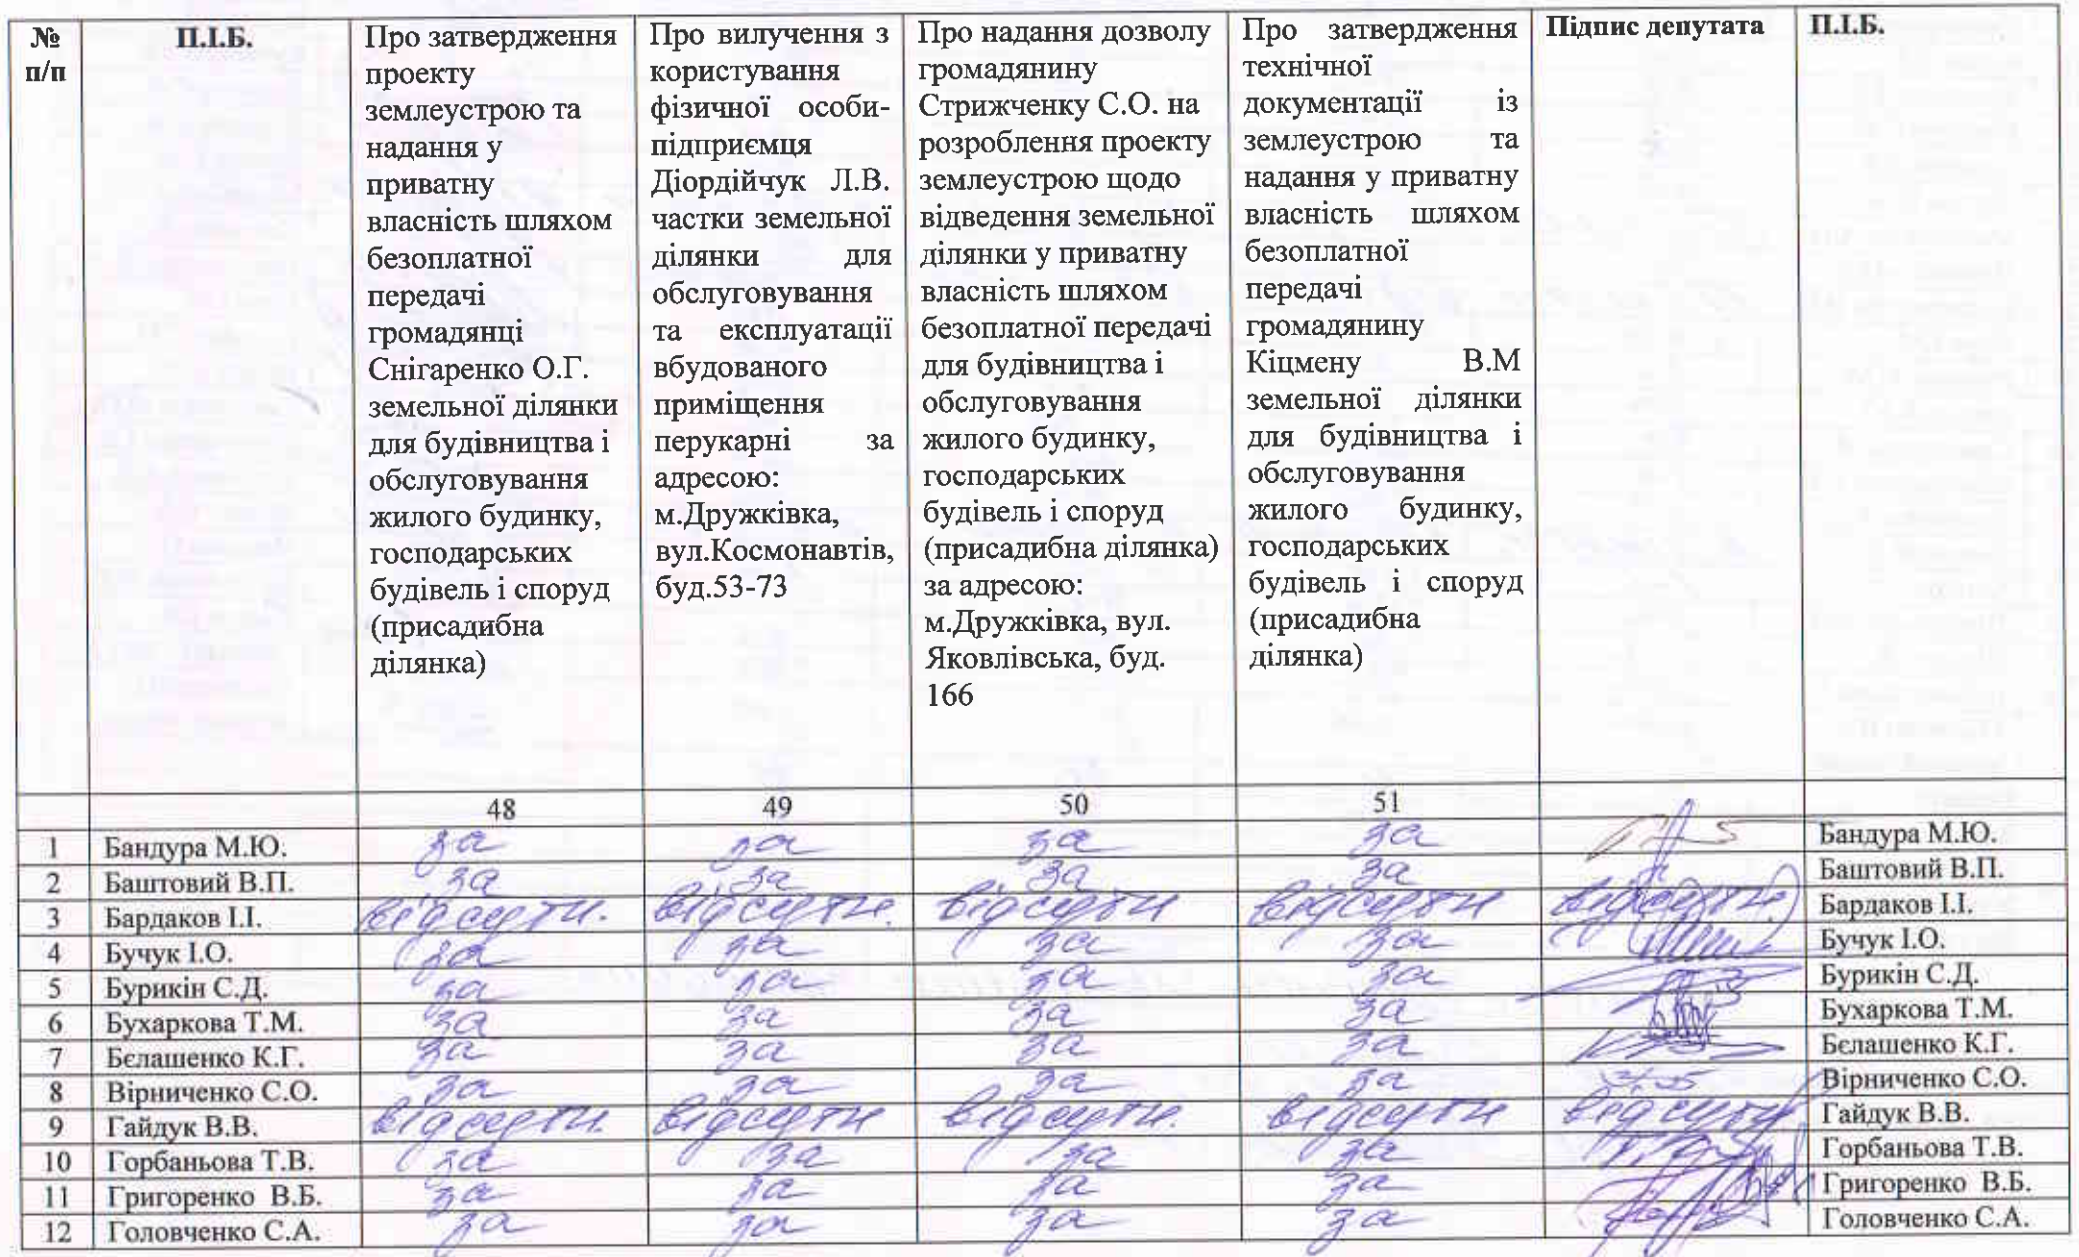 № п/п
П.І.Б.
Про затвердження
проекту
землеустрою та
надання у
приватну
власність шляхом
безоплатної
передачі
громадянці
Снігаренко О.Г.
земельної ділянки
для будівництва і
обслуговування
жилого будинку,
господарських
будівель і споруд
(присадибна
ділянка)
Про вилучення з
користування
фізичної особи-
підприємця
Діордійчук Л.В.
частки земельної
ділянки для
обслуговування
та експлуатації
вбудованого
приміщення
перукарні за
адресою:
м.Дружківка,
вул.Космонавтів,
буд.53-73
Про надання дозволу
громадянину
Стрижченку С.О. на
розроблення проекту
землеустрою щодо
відведення земельної
ділянки у приватну
власність шляхом
безоплатної передачі
для будівництва і
обслуговування
жилого будинку,
господарських
будівель і споруд
(присадибна ділянка)
за адресою:
м.Дружківка, вул.
Яковлівська, буд.
166
Про затвердження
технічної
документації із
землеустрою та
надання у приватну
власність шляхом
безоплатної
передачі
громадянину
Кіцмену В.М
земельної ділянки
для будівництва і
обслуговування
жилого будинку,
господарських
будівель і споруд
(присадибна
ділянка)
Підпис депутата
П.І.Б.
48 49 50 51
1 Бандура М.Ю. за за за за Бандура М.Ю.
2 Баштовий В.П. за за за за Баштовий В.П.
3 Бардаков І.І. відсутн. відсутн. відсутн відсутн відсутн. Бардаков І.І.
4 Бучук І.О. за за за за Бучук І.О.
5 Бурикін С.Д. за за за за Бурикін С.Д.
6 Бухаркова Т.М. за за за за Бухаркова Т.М.
7 Бєлашенко К.Г. за за за за Бєлашенко К.Г.
8 Вірниченко С.О. за за за за Вірниченко С.О.
9 Гайдук В.В. відсутн. відсутн відсутн. відсутн відсутн Гайдук В.В.
10 Горбаньова Т.В. за за за за Горбаньова Т.В.
11 Григоренко В.Б. за за за за Григоренко В.Б.
12 Головченко С.А. за за за за Головченко С.А.